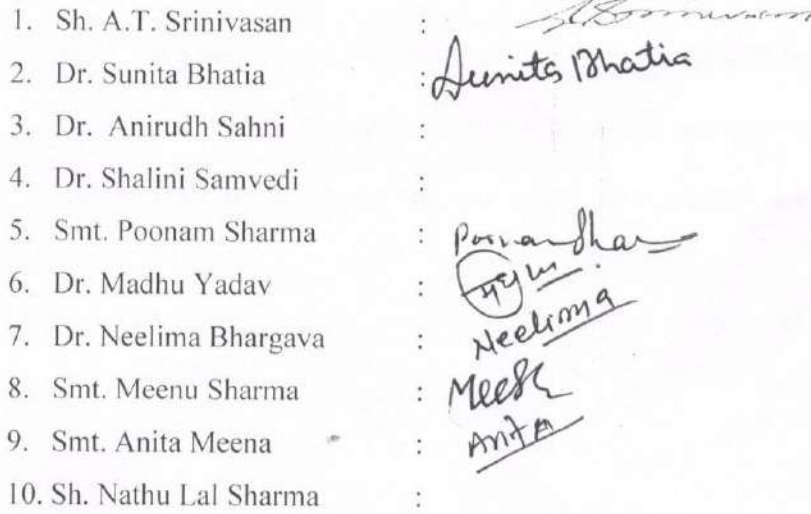 1. Sh. A.T. Srinivasan :
2. Dr. Sunita Bhatia : Sunita Bhatia
3. Dr. Anirudh Sahni :
4. Dr. Shalini Samvedi :
5. Smt. Poonam Sharma :
6. Dr. Madhu Yadav :
7. Dr. Neelima Bhargava : Neelima
8. Smt. Meenu Sharma :
9. Smt. Anita Meena : Anita
10. Sh. Nathu Lal Sharma :